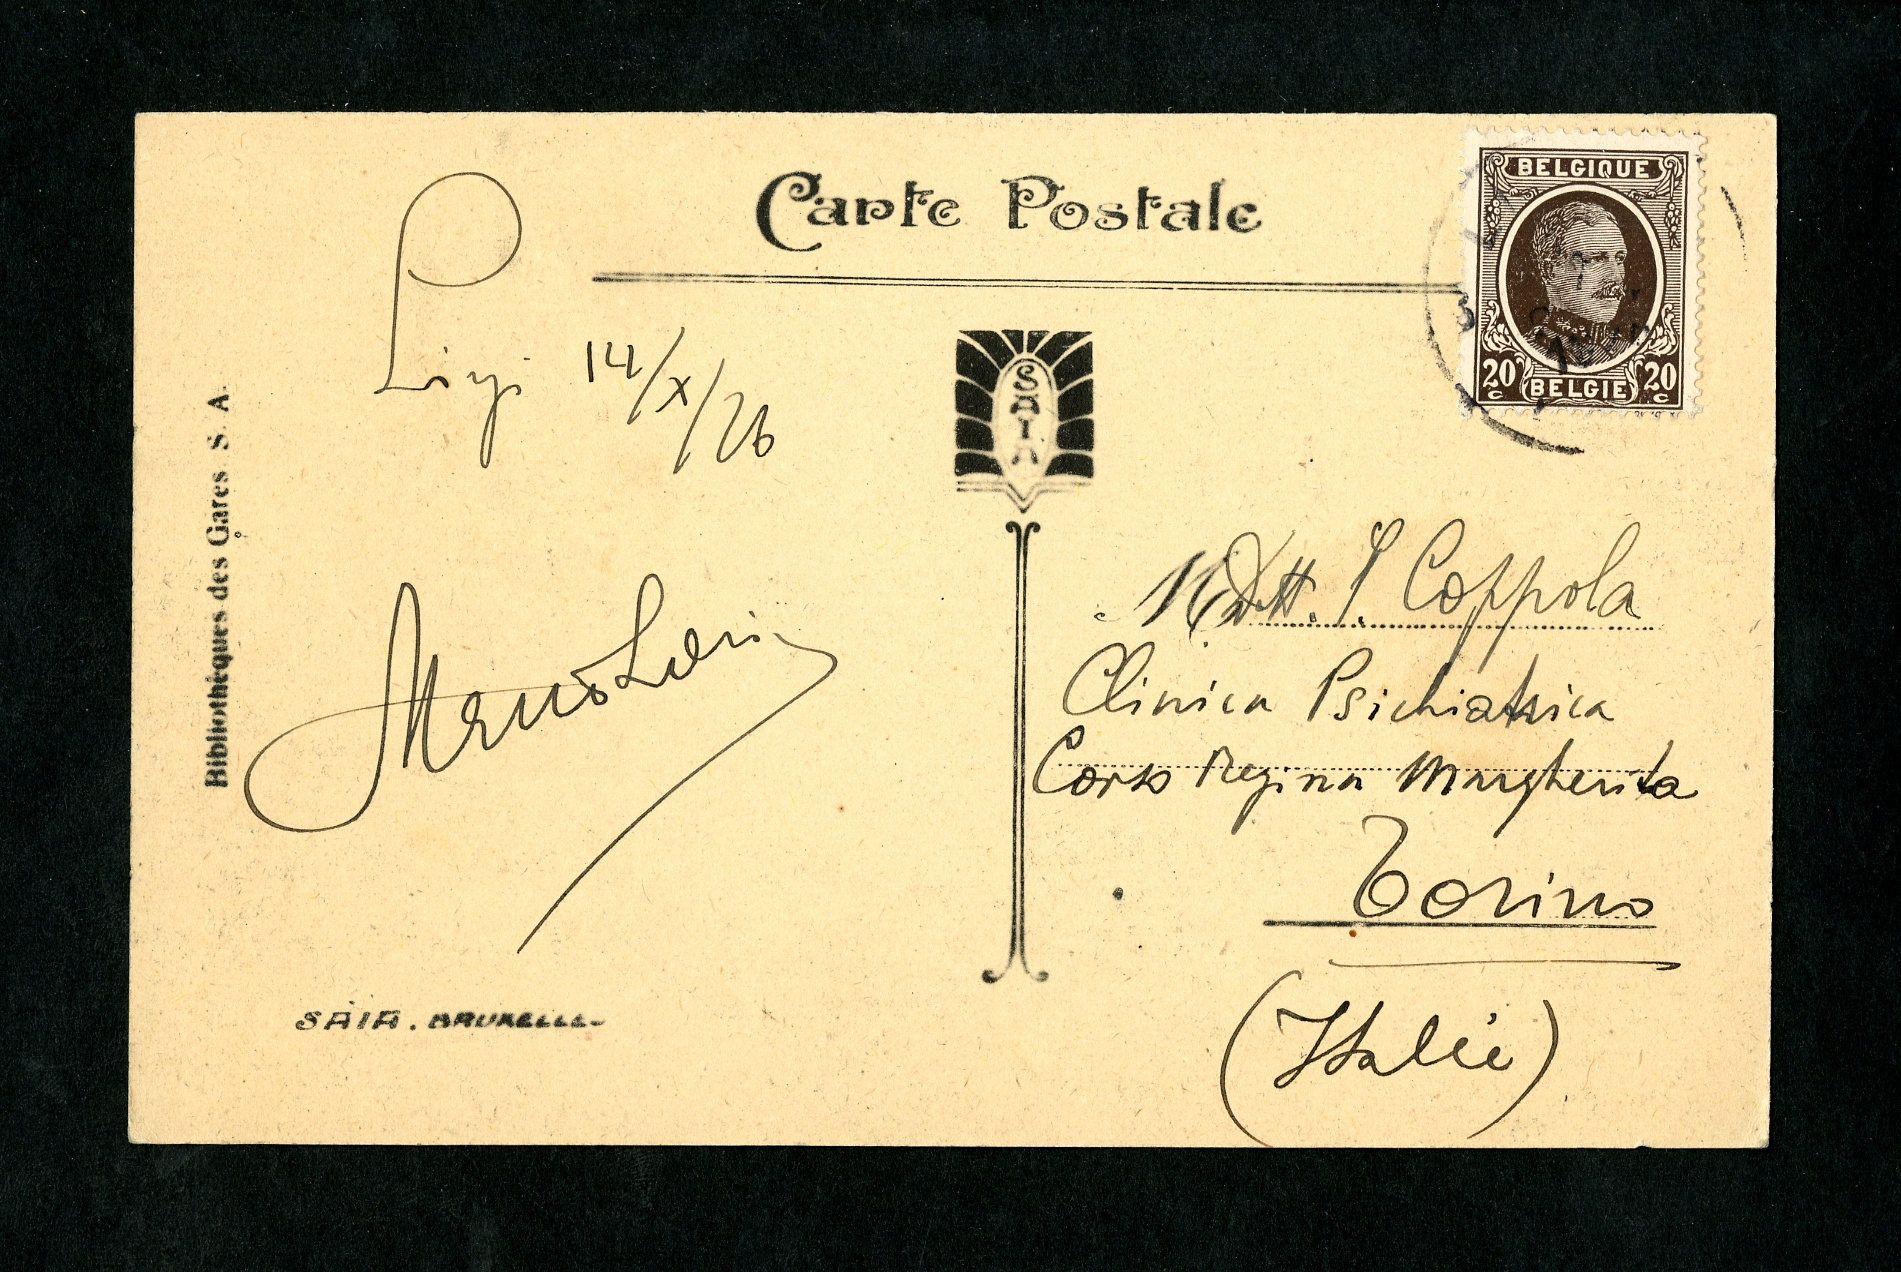 Carte Postale
BELGIQUE
20 c BELGIË 20 c
SAIA
14/X/26
Bibliothèques des Gares S. A.
Dott. Coppola
Clinica Psichiatrica
Corso Regina Margherita
Torino
(Italie)
SAIA. BRUXELLES